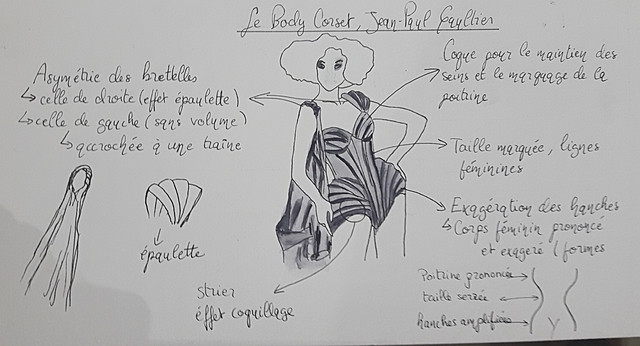 Le Body Corset, Jean-Paul Gaultier
Asymétrie des bretelles
↳ celle de droite (effet épaulette)
↳ celle de gauche (sans volume)
↳ accrochée à une traîne
épaulette
strier
effet coquillage
Coque pour le maintien des
seins et le marquage de la
poitrine
Taille marquée, lignes
féminines
Exagération des hanches
↳ Corps féminin prononcé
et exagéré (formes
Poitrine prononcée
taille serrée
hanches amplifiées